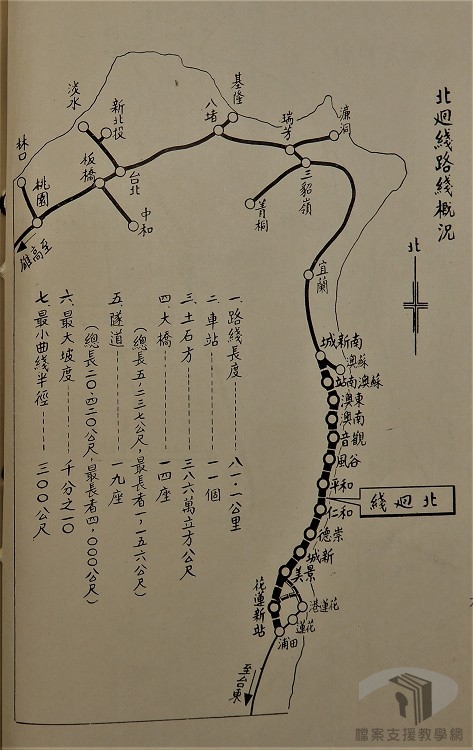 北迴綫路綫概況
北
基隆
八堵
瑞芳
濂洞
淡水
新北投
台北
板橋
中和
林口
桃園
至高雄
三貂嶺
菁桐
宜蘭
南新城
蘇澳
蘇澳南站
東澳
南澳
觀音
谷風
和平
和仁
崇德
新城
景美
北迴綫
花蓮新站
花蓮港
花蓮
田浦
至台東
一.路綫長度-----八一.一公里
二.車站-----一一個
三.土石方-----三八六萬立方公尺
四.大橋-----一四座
(總長五,二三七公尺,最長者一,一五六公尺)
五.隧道-----一九座
(總長二〇,四二〇公尺,最長者四,〇〇〇公尺)
六.最大坡度-----千分之一〇
七.最小曲綫半徑-----三〇〇公尺
檔案支援教學網